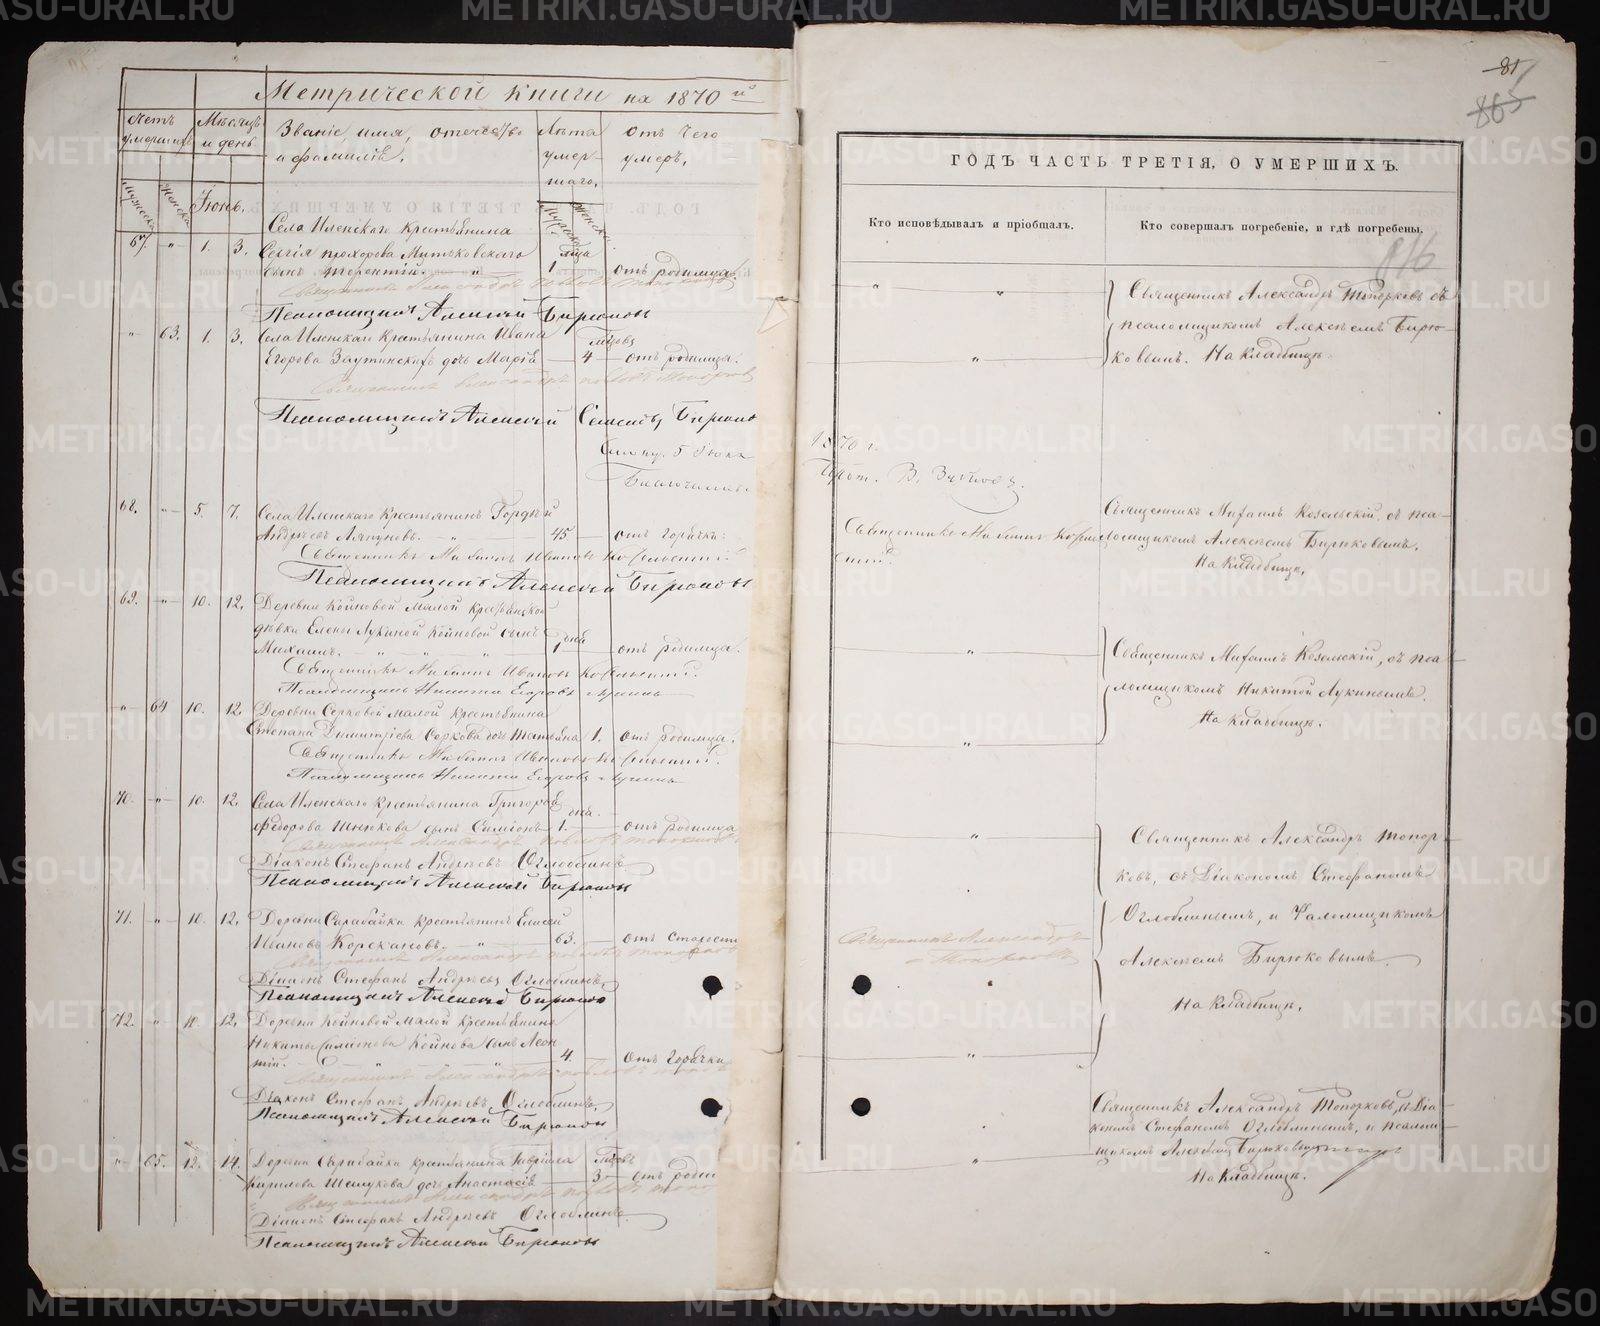 Метрической книги на 1870й
Счетъ умершихъ
Мѣсяцъ и день
Званіе, имя, отечество и фамилія.
Лѣта умершаго.
Отъ чего умеръ.
Мужеска
Женска
Іюнь.
Мужескаго
Женска
Села Иленскаго крестьянина
67. " 1. 3. Сергія Прохорова Митьковскаго
сынъ Терентій. " 1 отъ родимца.
Псаломщикъ Алексѣй Бирюковъ
" 63. 1. 3. Села Иленскаго крестьянина Ивана
Егорова Заутинскихъ дочь Марія 4 отъ родимца.
Псаломщикъ Алексѣй Бирюков
68. " 5. 7. Села Иленскаго крестьянинъ Гордѣй
Андреевъ Ляпуновъ. " 45 отъ горячки.
Священникъ Михаилъ Ивановъ Козельскій.
Псаломщикъ Алексѣй Бирюковъ
69. " 10. 12. Деревни Койновой Малой крестьянской
дѣвки Елены Лукиной Койновой сынъ дней
Михаилъ. " " " 1 отъ родимца.
Священникъ Михаилъ Ивановъ Козельскій.
Псаломщикъ Никита Егоровъ Лукинъ
" 64 10. 12. Деревни Серковой Малой крестьянина
Степана Димитріева Серкова дочь Татьяна 1. отъ родимца.
Священникъ Михаилъ Ивановъ Козельскій.
Псаломщикъ Никита Егоровъ Лукинъ
70. " 10. 12. Села Иленскаго крестьянина Григорія дня.
Федорова Шнюкова сынъ Симеонъ 1. отъ родимца
Діаконъ Стефанъ Андреевъ Оглоблинъ
Псаломщикъ Алексѣй Бирюковъ
71. " 10. 12. Деревни Сарабайки крестьянинъ Елисей
Ивановъ Корекановъ. " 63. отъ старости
Діаконъ Стефанъ Андреевъ Оглоблинъ
Псаломщикъ Алексѣй Бирюковъ
72. " 11 12. Деревни Койновой Малой крестьянина
Никиты Симеонова Койнова сынъ Леон
тій. " " " 4. отъ горячки
Діаконъ Стефанъ Андреевъ Оглоблинъ.
Псаломщикъ Алексѣй Бирюковъ
" 65. 12. 14. Деревни Сарабайки крестьянина Гавріила
Кирилова Шешукова дочь Анастасія 3 отъ роди
Діаконъ Стефанъ Андреевъ Оглоблинъ
Псаломщикъ Алексѣй Бирюковъ
81
865
ГОДЪ ЧАСТЬ ТРЕТІЯ, О УМЕРШИХЪ.
Кто исповѣдывалъ и пріобщалъ.
Кто совершалъ погребеніе, и гдѣ погребены.
816
Священникъ Александръ Топорковъ съ
псаломщикомъ Алексѣемъ Бирю-
ковымъ. На кладбищѣ.
1870 г.
Священникъ Михаилъ Козельскій, съ пса-
ломщикомъ Алексѣемъ Бирюковымъ.
На кладбищѣ.
Священникъ Михаилъ Козельскій, съ пса-
ломщикомъ Никитой Лукинымъ.
На кладбищѣ.
Священникъ Александръ Топор-
ковъ, съ Діакономъ Стефаномъ
Оглоблинымъ, и Псаломщикомъ
Алексѣемъ Бирюковымъ.
На кладбищѣ.
Священникъ Александръ
Топорковъ
Священникъ Александръ Топорковъ, съ Діа-
кономъ Стефаномъ Оглоблинымъ, и псалом-
щикомъ Алексѣемъ Бирюковымъ
На кладбищѣ.
METRIKI.GASO-URAL.RU